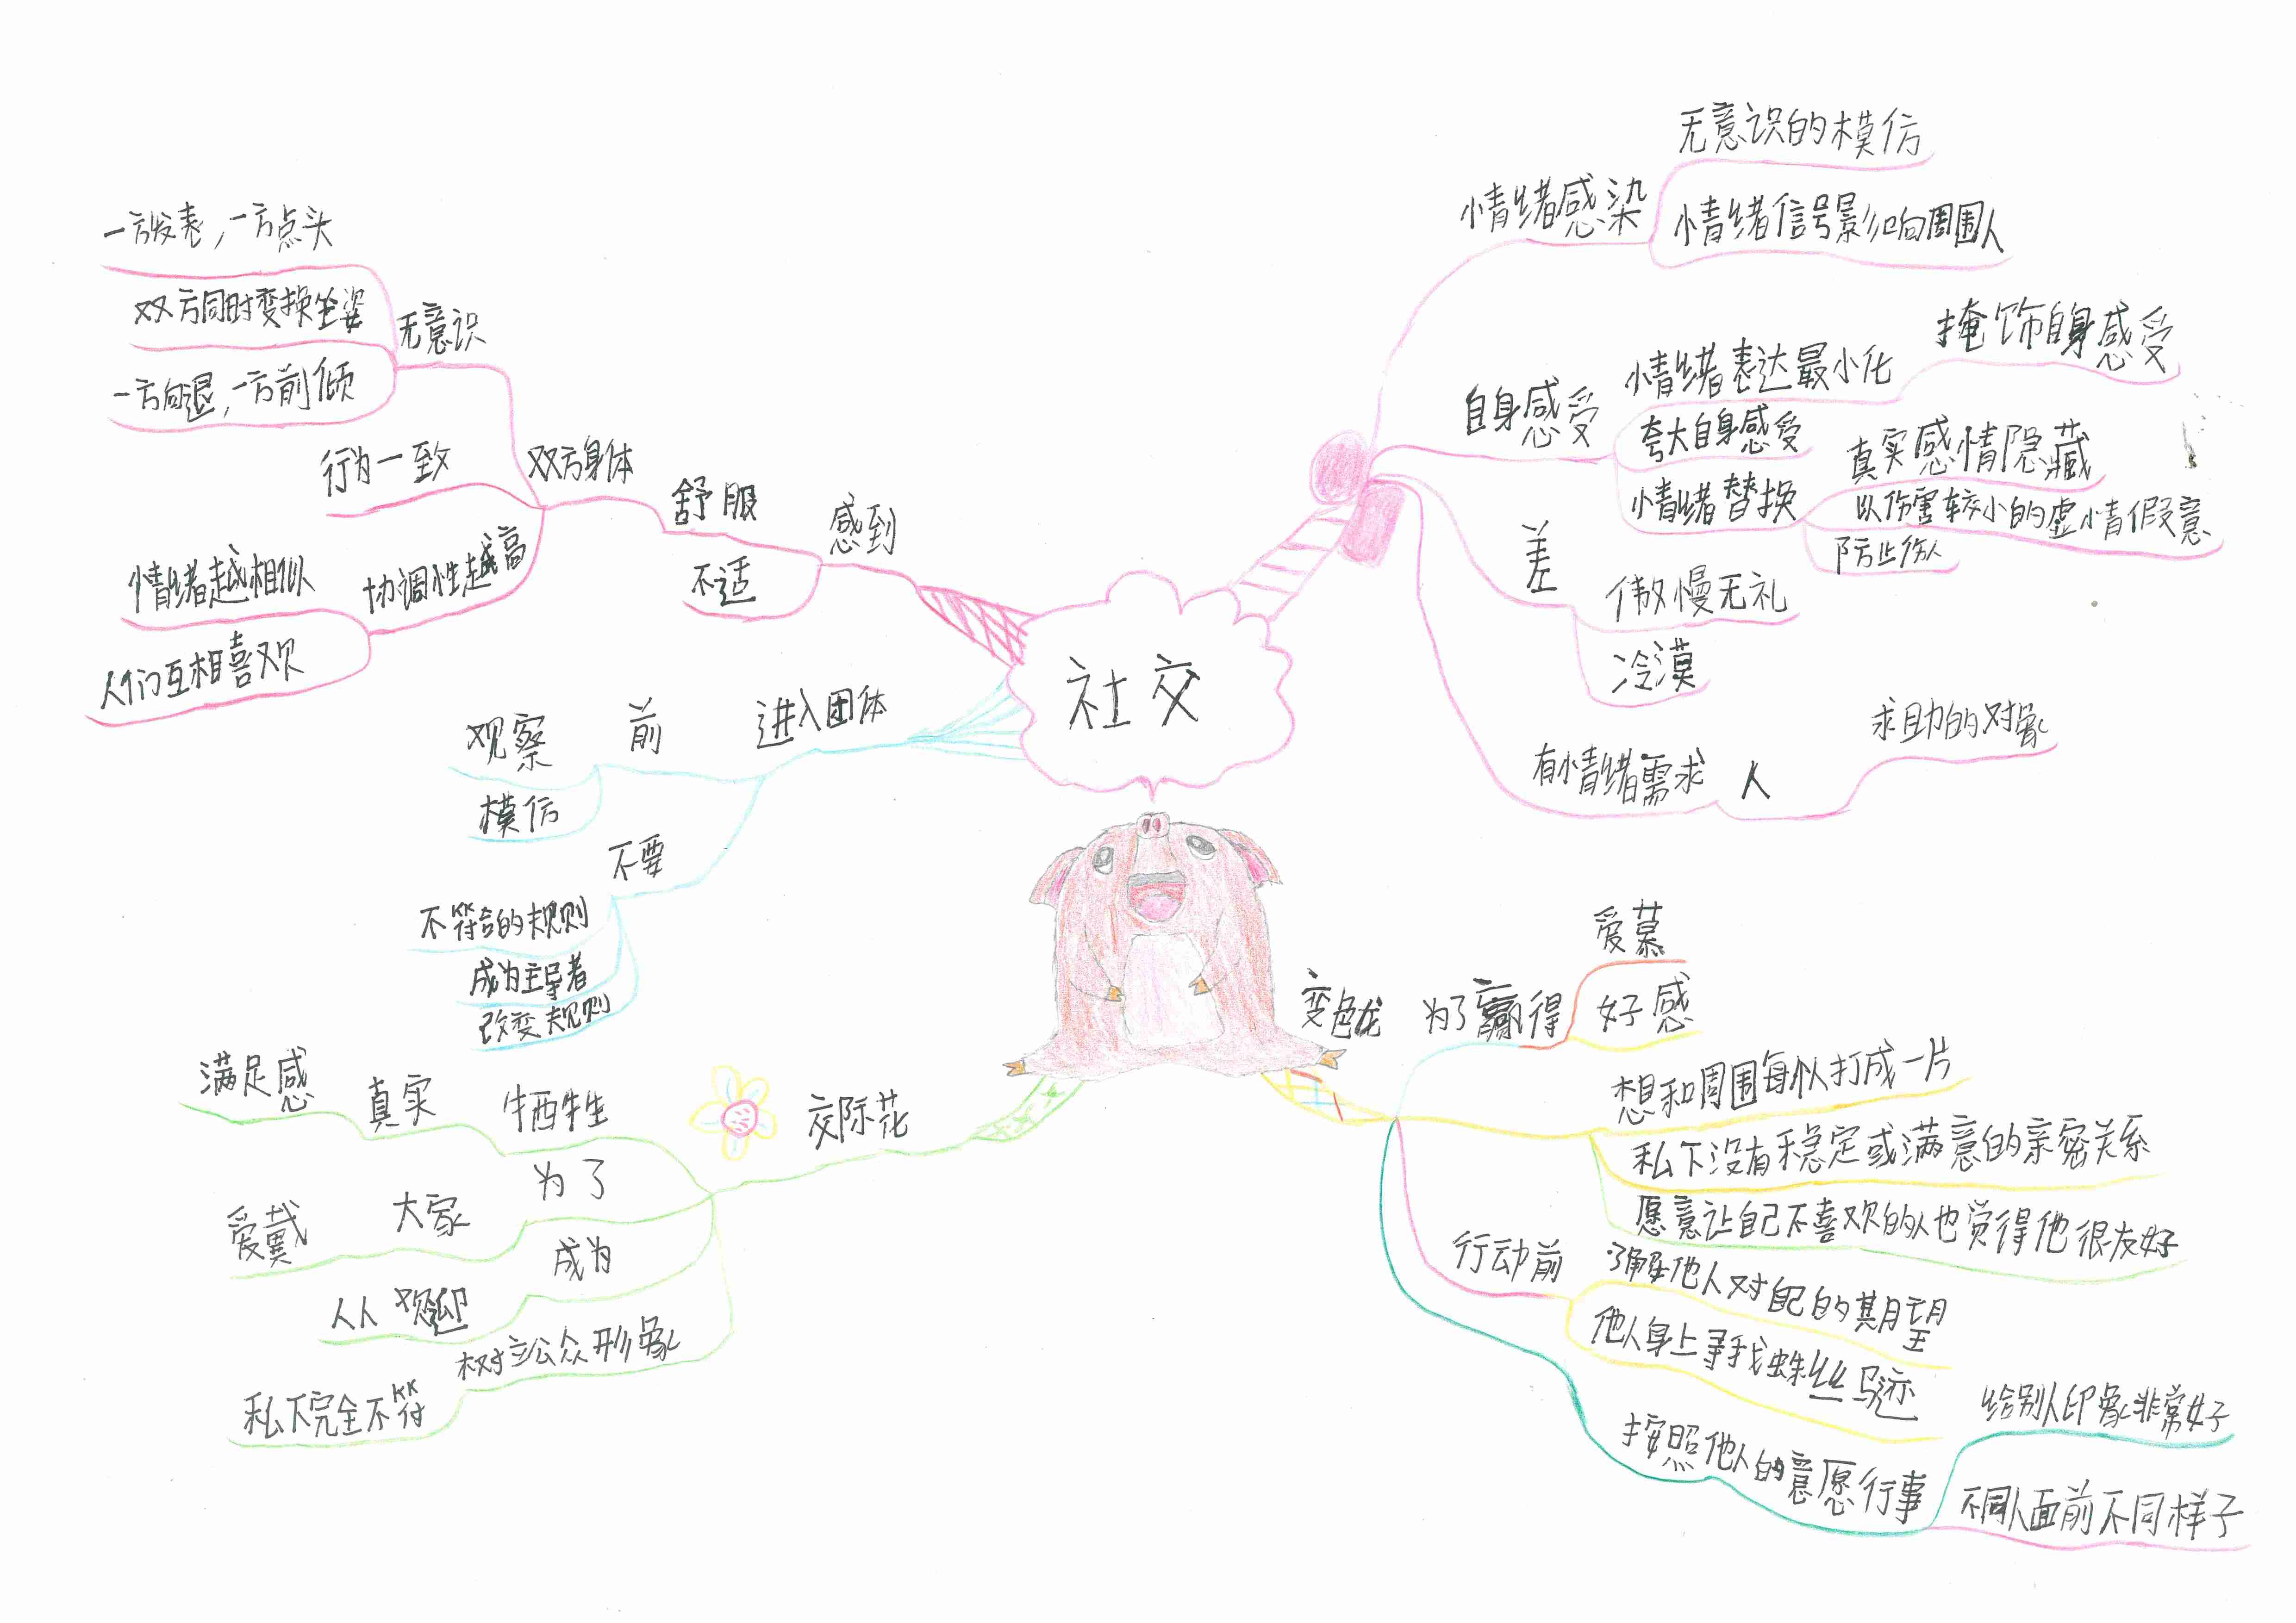 社交
情绪感染
无意识的模仿
情绪信号影响周围人
自身感受
情绪表达最小化
掩饰自身感受
夸大自身感受
情绪替换
真实感情隐藏
以伤害较小的虚情假意
防止伤人
差
傲慢无礼
冷漠
有情绪需求
人
求助的对象
变色龙
为了赢得
爱慕
好感
想和周围每个人打成一片
私下没有稳定或满意的亲密关系
愿意让自己不喜欢的人也觉得他很友好
行动前
了解他人对自己的期望
他人身上寻找蛛丝马迹
按照他人的意愿行事
给别人印象非常好
不同人面前不同样子
交际花
牺牲
真实
满足感
为了
大家
爱戴
成为
人人欢迎
树立公众形象
私下完全不符
进入团体
前
观察
模仿
不要
不符合的规则
成为主导者
改变规则
感到
舒服
不适
双方身体
无意识
一方发表，一方点头
双方同时变换坐姿
一方向退，一方前倾
行为一致
协调性越高
情绪越相似
人们互相喜欢